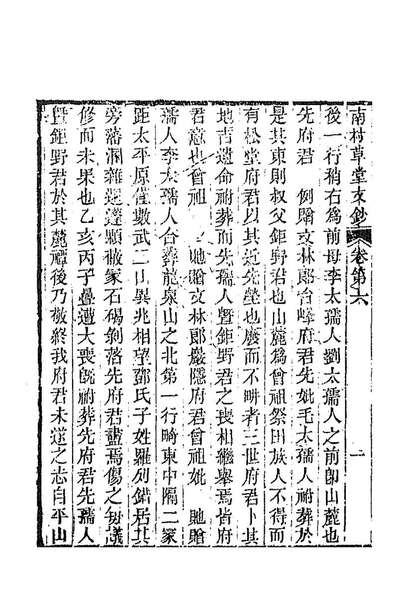 南村草堂文鈔 卷第六 一
後一行稍右爲前母李太孺人劉太孺人之前卽山麓也
先府君 例贈文林郎台峰府君先妣毛太孺人祔葬於
是其東則叔父鉅野君也山麓爲曾祖祭田族人不得而
有松堂府君以其近先塋也廢而不畊者三世府君卜其
地吉遺命祔葬而先孺人曁鉅野君之喪相繼舉焉皆府
君意也曾祖 貤贈文林郎嚴隱府君曾祖妣 貤贈
孺人李太孺人合葬龍泉山之北第一行畸東中隔二冢
距太平原僅數武二山巽兆相望鄧氏子姓羅列錯居其
旁落澗雜遝邅顯敝冢石碭剝落先府君盡焉傷之每議
修而未果也乙亥丙子疊遭大喪旣祔葬先府君先孺人
曁鉅野君於其麓禫後乃敬終我府君未遂之志自平山